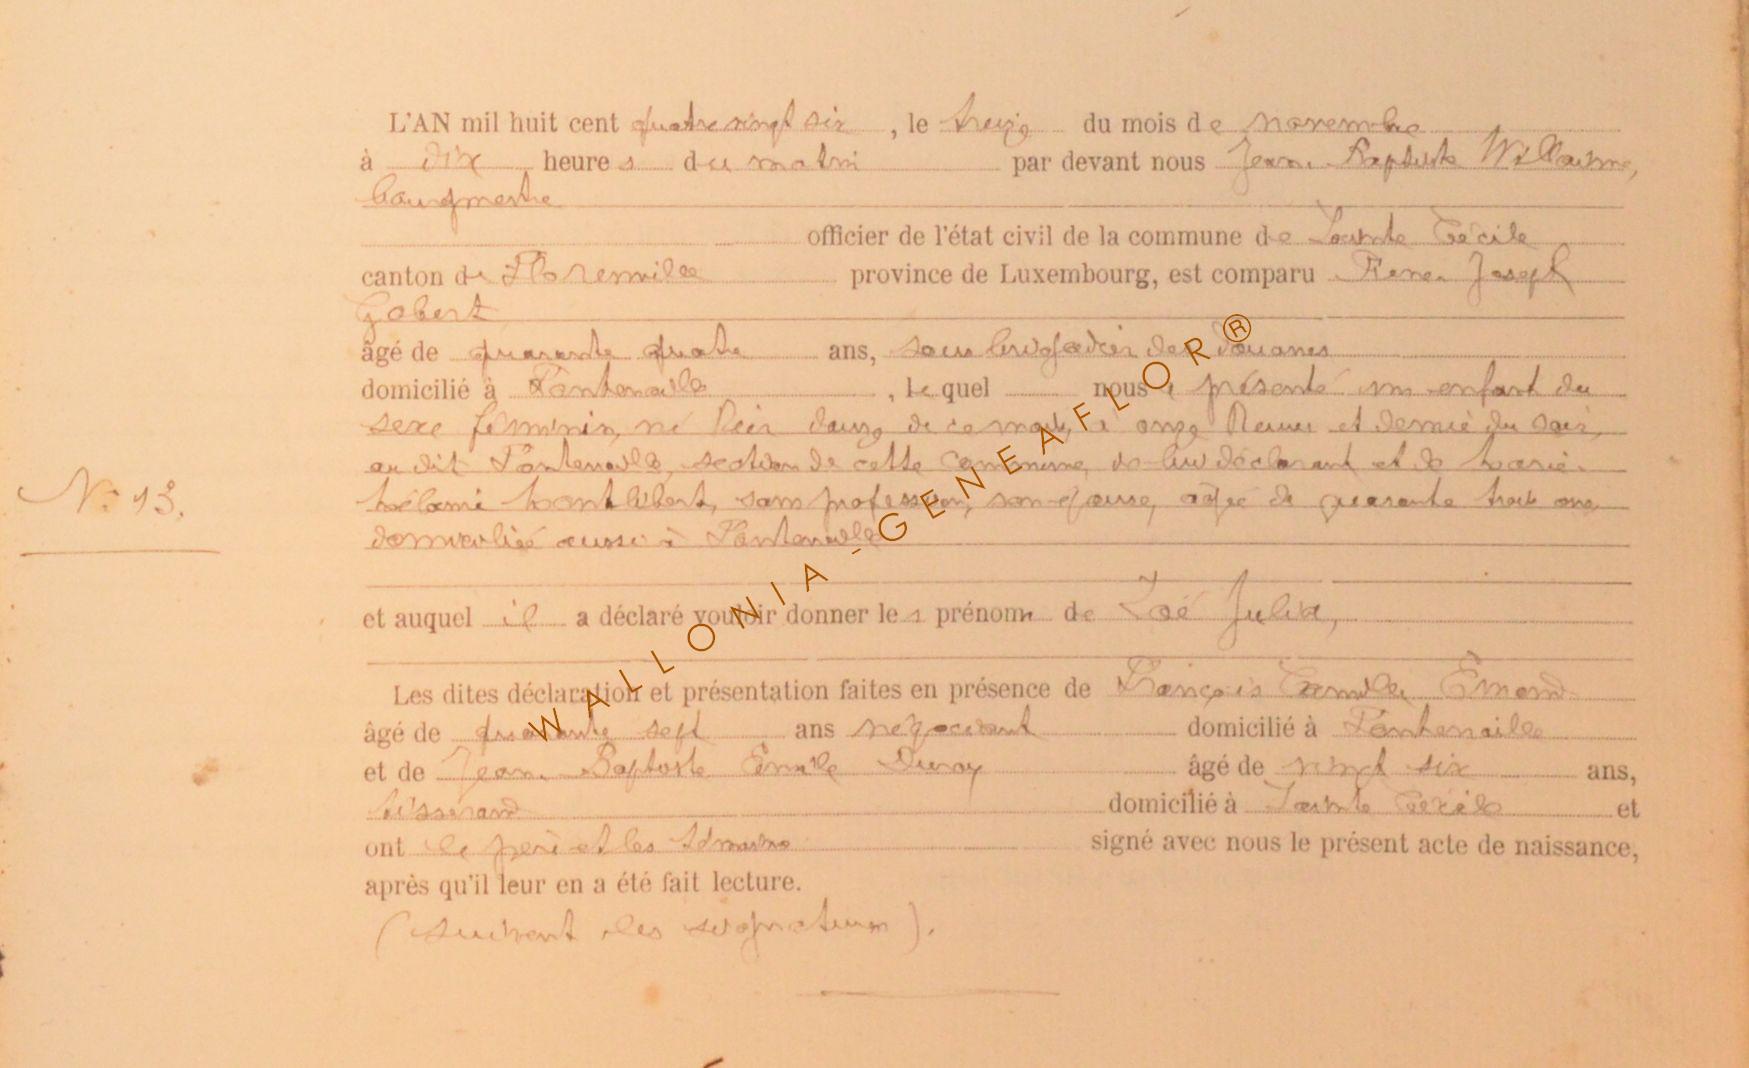 L'AN mil huit cent quatre vingt six , le treize du mois de novembre
à dix heures du matin par devant nous Jean Baptiste Willaume,
bourgmestre
officier de l'état civil de la commune de Sainte Cécile
canton de Florenville province de Luxembourg, est comparu Joseph
Gobert
âgé de quarante quatre ans, sous brigadier des douanes
domicilié à Fontenoille , le quel nous a présenté un enfant du
sexe féminin, né hier douze de ce mois, à onze heures et demie du soir,
au dit Fontenoille, section de cette commune, de lui déclarant et de Marie
Mélanie Montlibert, sans profession, son épouse, agée de quarante trois ans
N° 13.
domiciliée aussi à Fontenoille
et auquel il a déclaré vouloir donner les prénoms de Zoé Julia,
Les dites déclaration et présentation faites en présence de François Camille Emond
âgé de quarante sept ans négociant domicilié à Fontenoille
et de Jean Baptiste Emile Duroy âgé de vingt six ans,
tisserand domicilié à Sainte Cécile et
ont le père et les témoins signé avec nous le présent acte de naissance,
après qu'il leur en a été fait lecture.
(suivent les signatures).
WALLONIA-GENEAFLOR®